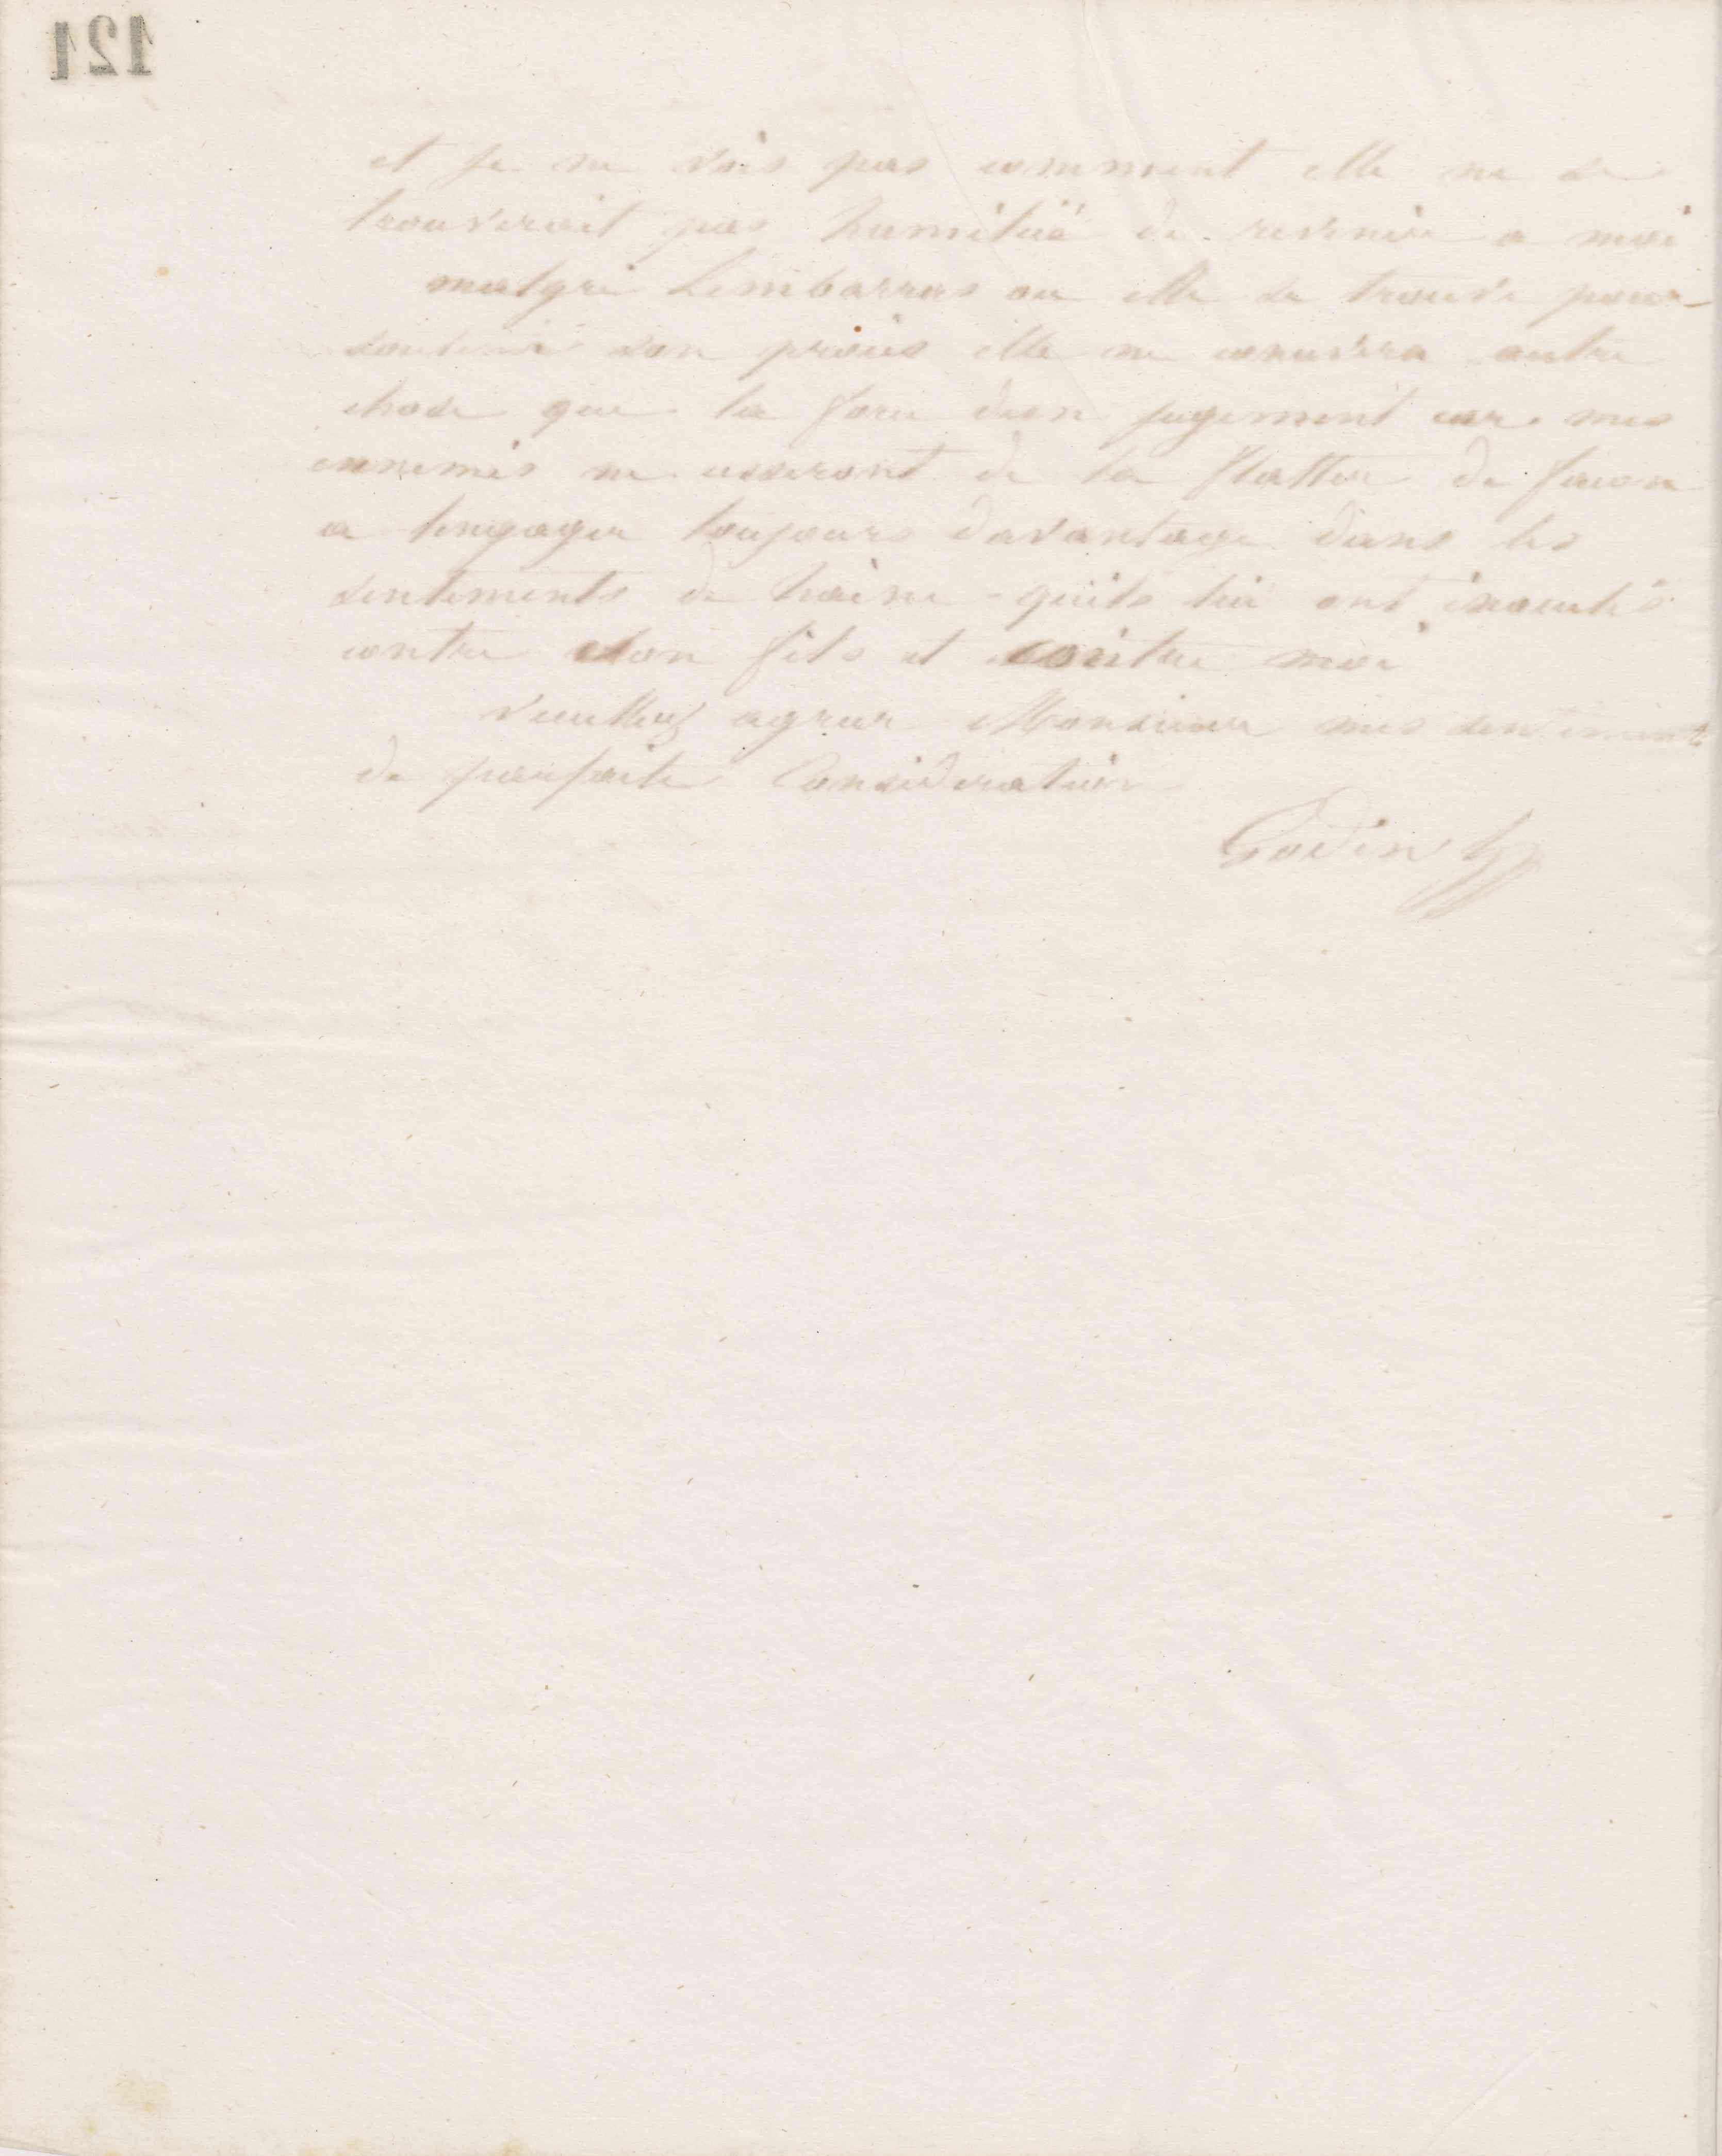 121
et je ne vois pas comment elle ne se
trouverait pas humiliée de revenir a moi
malgré Lembarras ou elle se trouve pour
soutenir son procès elle ne connaitra autre
chose que la force dun jugement car mes
ennemis ne cesseront de la flatter de facon
a lengager toujours davantage dans les
sentiments de haine quils lui ont inculués
contre son fils et contre moi
veuillez agreer Monsieur mes sentiments
de parfaite Consideration
Godin